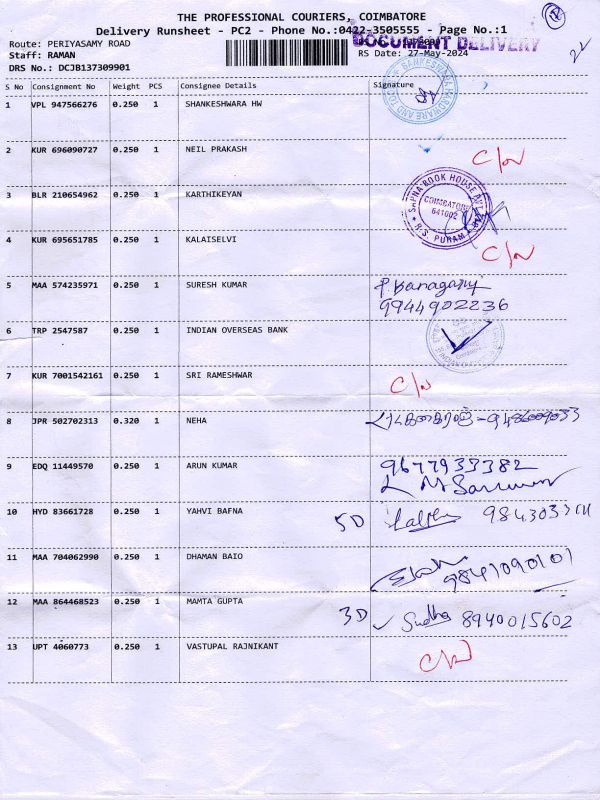 THE PROFESSIONAL COURIERS, COIMBATORE
Delivery Runsheet - PC2 - Phone No.:0422-3505555 - Page No.:1
DOCUMENT DELIVERY
Route: PERIYASAMY ROAD
Staff: RAMAN RS Date: 27-May-2024
DRS No.: DCJB137309901
22
S No Consignment No Weight PCS Consignee Details Signature
1 VPL 947566276 0.250 1 SHANKESHWARA HW
2 KUR 696090727 0.250 1 NEIL PRAKASH C/N
3 BLR 210654962 0.250 1 KARTHIKEYAN
SAPNA BOOK HOUSE PVT
COIMBATORE
641002
R.S. PURAM
4 KUR 695651785 0.250 1 KALAISELVI C/N
5 MAA 574235971 0.250 1 SURESH KUMAR
9944902236
6 TRP 2547587 0.250 1 INDIAN OVERSEAS BANK
7 KUR 7001542161 0.250 1 SRI RAMESHWAR C/N
8 JPR 502702313 0.320 1 NEHA
9 EDQ 11449570 0.250 1 ARUN KUMAR 9677933382
10 HYD 83661728 0.250 1 YAHVI BAFNA 5D
11 MAA 704062990 0.250 1 DHAMAN BAIO 9841090101
12 MAA 864468523 0.250 1 MAMTA GUPTA 3D Sudha 8940015602
13 UPT 4060773 0.250 1 VASTUPAL RAJNIKANT C/N